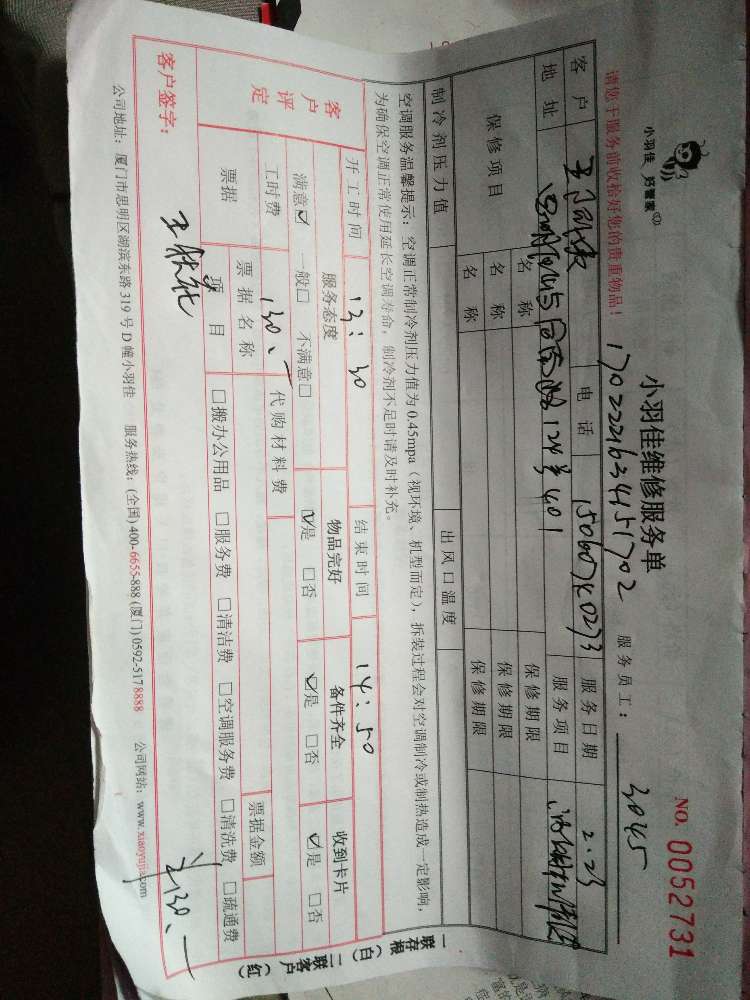 小羽佳 好管家
小羽佳维修服务单
NO. 0052731
请您于服务前收拾好您的贵重物品！
1702221634151702
服务员工： 3045
客户 电话 服务日期 2.23
地址 124号401 服务项目
保修项目 名称 保修期限
名称 保修期限
名称 保修期限
制冷剂压力值 出风口温度
空调服务温馨提示：空调正常制冷剂压力值为0.45mpa（视环境、机型而定），拆装过程会对空调制冷或制热造成一定影响，
为确保空调正常使用延长空调寿命，制冷剂不足时请及时补充。
客户评定 开工时间 13：30 结束时间 14：50
服务态度 物品完好 备件齐全 收到卡片
满意☑ 一般□ 不满意□ ☑是 □否 ☑是 □否 ☑是 □否
工时费 130.一 代购材料费
票据 票据名称 票据金额
项目 □搬办公用品 □服务费 □清洁费 □空调服务费 □清洗费 □疏通费
客户签字： ￥130.一
公司地址：厦门市思明区湖滨东路319号D幢小羽佳 服务热线：(全国)400-6655-888 (厦门)0592-5178888 公司网站：www.xiaoyujia.com
一联存根（白） 二联客户（红）